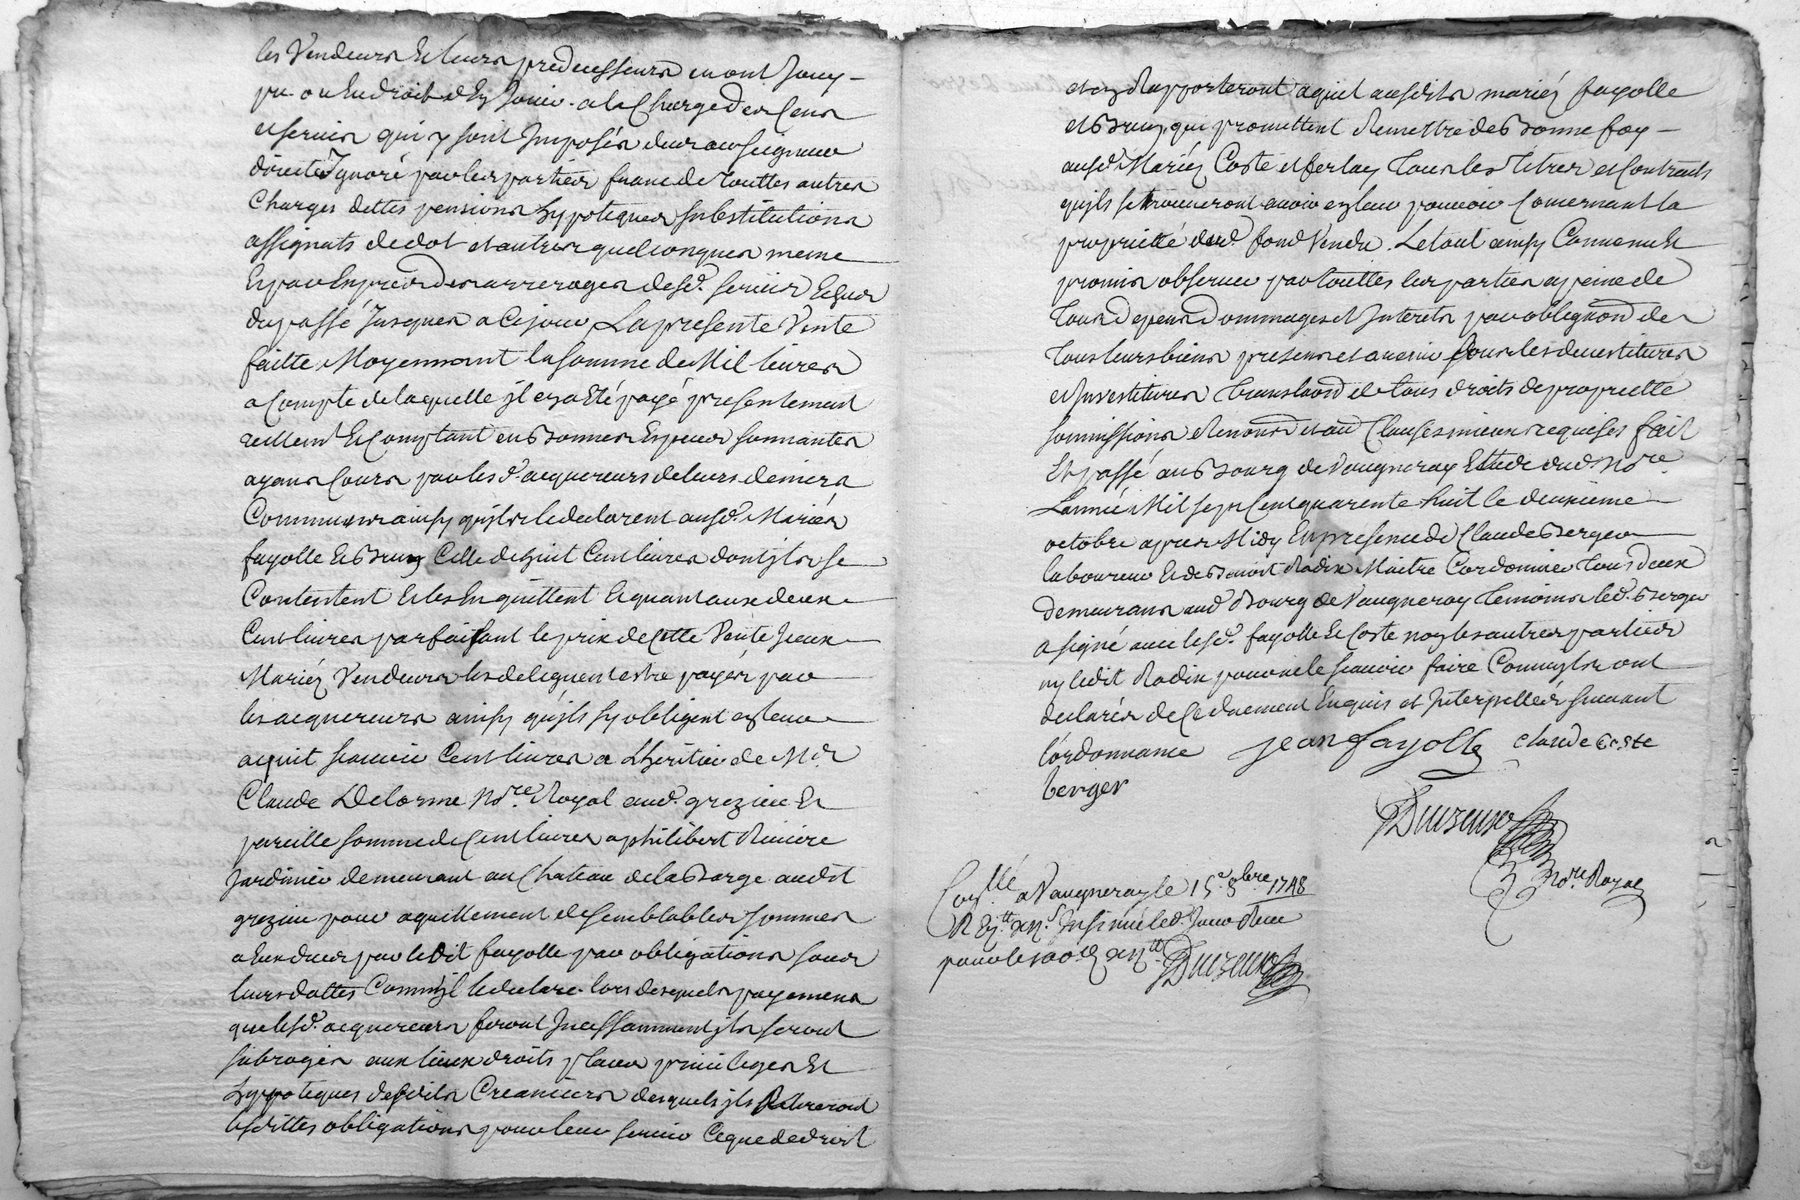 les Vendeurs Et leurs predecesseurs en ont Jouy
pu ou En droit d'En Jouir a la Charge des Cens
et servis qui y sont Imposés deus au seigneur
direct Ignoré par les parties franc de touttes autres
Charges dettes pensions hypoteques substitutions
assignats de dot et autres quelconques meme
Expressement des arrerages desd. servis Echus
du passé Jusques a Ce jour La presente Vente
faitte Moyennant la somme de Mil livres
a Compte de laquelle jl en a Eté payé presentement
reellemt Et Comptant en bonnes Especes sonnantes
ayans Cours par lesd. acquereurs de leurs deniers
Communs ainsy qu'jls le declarent ausd. Mariés
fayolle Et brun Celle de huit Cent livres dont jls se
Contentent Et les En quittent Et quant aux deux
Cent livres parfaisant le prix de Cette Vente Iceux
Mariés Vendeurs les deleguent estre payés par
les acquereurs ainsy qu'jls sy obligent en leur
acquit scavoir Cent livres a Lheritier de Mr
Claude Delorme Nore Royal aud. grezieu Et
pareille somme de Cent livres a philibert Riviere
Jardinier demeurant au Chateau de la barge audit
grezieu pour aquittement de semblables sommes
a Eux dues par ledit fayolle par obligations sous
leurs dattes Comm'jl le declare lors desquels payemens
que lesd. acquereurs feront Incessamment jls seront
subrogés aux lieux droits places privileges Et
hypoteques desdits Creanciers desquels jls Retireront
lesdittes obligations pour leur servir Ce que de droit
et en Rapporteront aquit ausdits mariés fayolle
et brun, qui promettent Remettre de bonne foy
ausd. Mariés Coste et ferlay Tous les Titres et Contracts
qu'jls se trouveront avoir en leur pouvoir Concernant la
proprietté dud. fond Vendu. Le tout ainsy Convenu Et
promis observer par touttes les parties a peine de
tous depens dommages et Interets par obligaon de
tous leurs biens presens et avenir sous les devestitures
et Investitures translaon de tous droits de proprietté
soumissions Renonson et auō Clauses mieux requises fait
Et passé au bourg de Vaugneray Etude dud. Nore
L'année Mil sept Cent quarente huit le deuxieme
octobre apres Midy En presence de Claude Berger
laboureur Et de Benoit Radix Maitre Cordonnier tous deux
demeurans aud. Bourg de Vaugneray temoins led. Berger
a signé avec lesd. fayolle Et Coste non les autres parties
ny ledit Radix pour ne le scavoir faire Comm'jls ont
declarés de Ce duement Enquis et Interpellés suivant
l'ordonnance jean fayolle claude Coste
berger
Nore Royal
Conllé a Vaugneray le 15e 8bre 1748